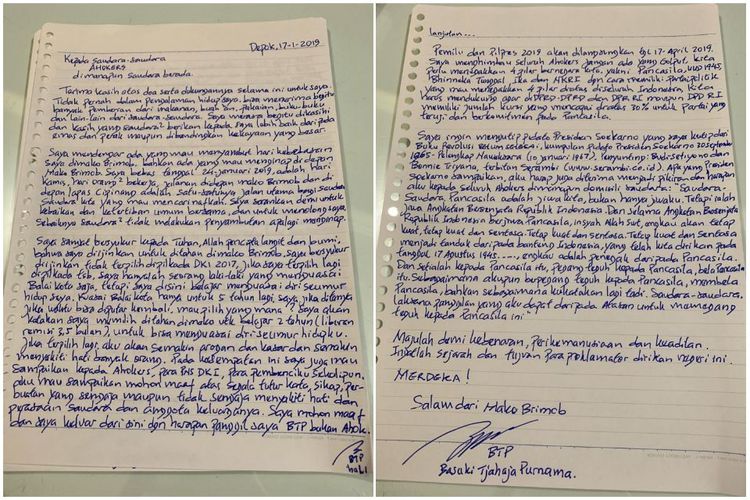 Depok, 17-1-2019
Kepada Saudara-saudara
AHOKERS
dimanapun saudara berada.
Terima kasih atas doa serta dukungannya selama ini untuk saya.
Tidak pernah dalam pengalaman hidup saya, bisa menerima begitu
banyak pemberian dari makanan, buah2an, pakaian, buku-buku
dan lain-lain dari saudara-saudara. Saya merasa begitu dikasihi
dan kasih yang saudara2 berikan kepada saya lebih baik daripada
emas dan perak maupun dibandingkan kekayaan yang besar.
Saya mendengar ada yang mau menyambut hari kebebasan
saya dimako Brimob, bahkan ada yang mau menginap di depan
Mako Brimob. Saya bebas tanggal 24-januari 2019, adalah hari
kamis, hari orang2 bekerja, jalanan didepan mako Brimob dan di
depan lapas Cipinang adalah satu-satunya jalan utama bagi saudara
saudara kita yang mau mencari nafkah. Saya sarankan demi untuk
kebaikan dan ketertiban umum bersama, dan untuk menolong saya,
sebaiknya saudara2 tidak melakukan penyambutan apalagi menginap.
Saya sangat bersyukur kepada Tuhan, Allah pencipta langit dan bumi,
bahwa saya diijinkan untuk ditahan dimako Brimob. Saya bersyukur
diijinkan tidak terpilih di Pilkada DKI 2017, jika saya terpilih lagi
di Pilkada tsb, saya hanyalah seorang laki-laki yang menguasai
Balai kota saja, tetapi saya disini belajar menguasai diri seumur
hidup saya. Kuasai Balai kota hanya untuk 5 tahun lagi, saya jika ditanya
jika waktu bisa diputar kembali, mau pilih yang mana? Saya akan
katakan saya memilih ditahan dimako utk belajar 2 tahun (liburan
remisi 3,5 bulan), untuk bisa menguasai diri seumur hidupku.
jika terpilih lagi, aku akan semakin arogan dan kasar dan semakin
menyakiti hati banyak orang. Pada kesempatan ini saya juga mau
sampaikan kepada Ahokers, para PNS DKI, Para pembenciku sekalipun,
aku mau sampaikan mohon maaf atas segala tutur kata, sikap, per-
buatan yang sengaja maupun tidak sengaja menyakiti hati dan
perasaan saudara dan anggota keluarganya. Saya mohon maaf
dan saya keluar dari sini dgn harapan panggil saya BTP bukan Ahok.
BTP
lanjutan...
Pemilu dan Pilpres 2019 akan dilangsungkan tgl 17-April 2019.
Saya menghimbau seluruh Ahokers jangan ada yang Golput, kita
perlu menegakkan 4 pilar bernegara kita, yakni Pancasila, UUD 1945,
Bhinneka Tunggal Ika dan NKRI dgn cara memiliki partai politik
yang mau menegakkan 4 pilar diatas diseluruh Indonesia. Kita
harus mendukung agar di DPRD-DPRD dan DPR RI maupun DPD RI
memiliki jumlah kursi yang mencapai diatas 30% untuk Partai yang
teruji dan berkomitmen pada Pancasila.
Saya ingin mengutip pidato Presiden Soekarno yang saya kutip dari
Buku Revolusi belum selesai, kumpulan pidato Presiden Soekarno 30 September
1965 - Pelengkap Nawaksara (10 januari 1967). Penyunting: Budi Setiyono dan
Bonnie Triyana. terbitan Serambi (www.serambi.co.id). Apa yang Presiden
Soekarno sampaikan, aku harap juga diterima menjadi pikiran dan harapan
aku kepada seluruh Ahokers dimanapun domisili saudara: "Saudara-
saudara, Pancasila adalah jiwa kita, bukan hanya jiwaku. Tetapi ialah
jiwa Angkatan Bersenjata Republik Indonesia. Dan selama Angkatan Bersenjata
Republik Indonesia berjiwa Pancasila, insyah Allah Swt, engkau akan tetap
kuat, tetap kuat dan sentosa. Tetap kuat dan sentosa. Tetap kuat dan sentosa
menjadi tandak daripada banteng Indonesia, yang telah kita dirikan pada
tanggal 17 Agustus 1945. ...., engkau adalah penegak daripada Pancasila.
Dan setialah kepada Pancasila itu, pegang teguh kepada Pancasila, bela Pancasila
itu. Sebagaimana akupun berpegang teguh kepada Pancasila, membela
Pancasila, bahkan sebagaimana kukatakan lagi tadi. Saudara-saudara,
laksana panggilan yang aku dapat daripada Atasan untuk memegang
teguh kepada Pancasila ini."
Majulah demi kebenaran, perikemanusiaan dan keadilan.
Ingatlah sejarah dan tujuan para proklamator dirikan negeri ini.
MERDEKA!
Salam dari Mako Brimob
BTP
Basuki Tjahaja Purnama.